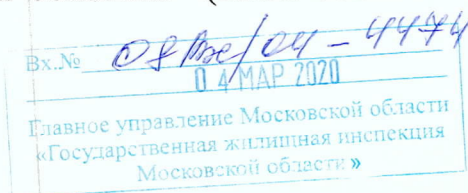 Вх.№ 08Вх/04-4474
04 МАР 2020
Главное управление Московской области
«Государственная жилищная инспекция
Московской области»